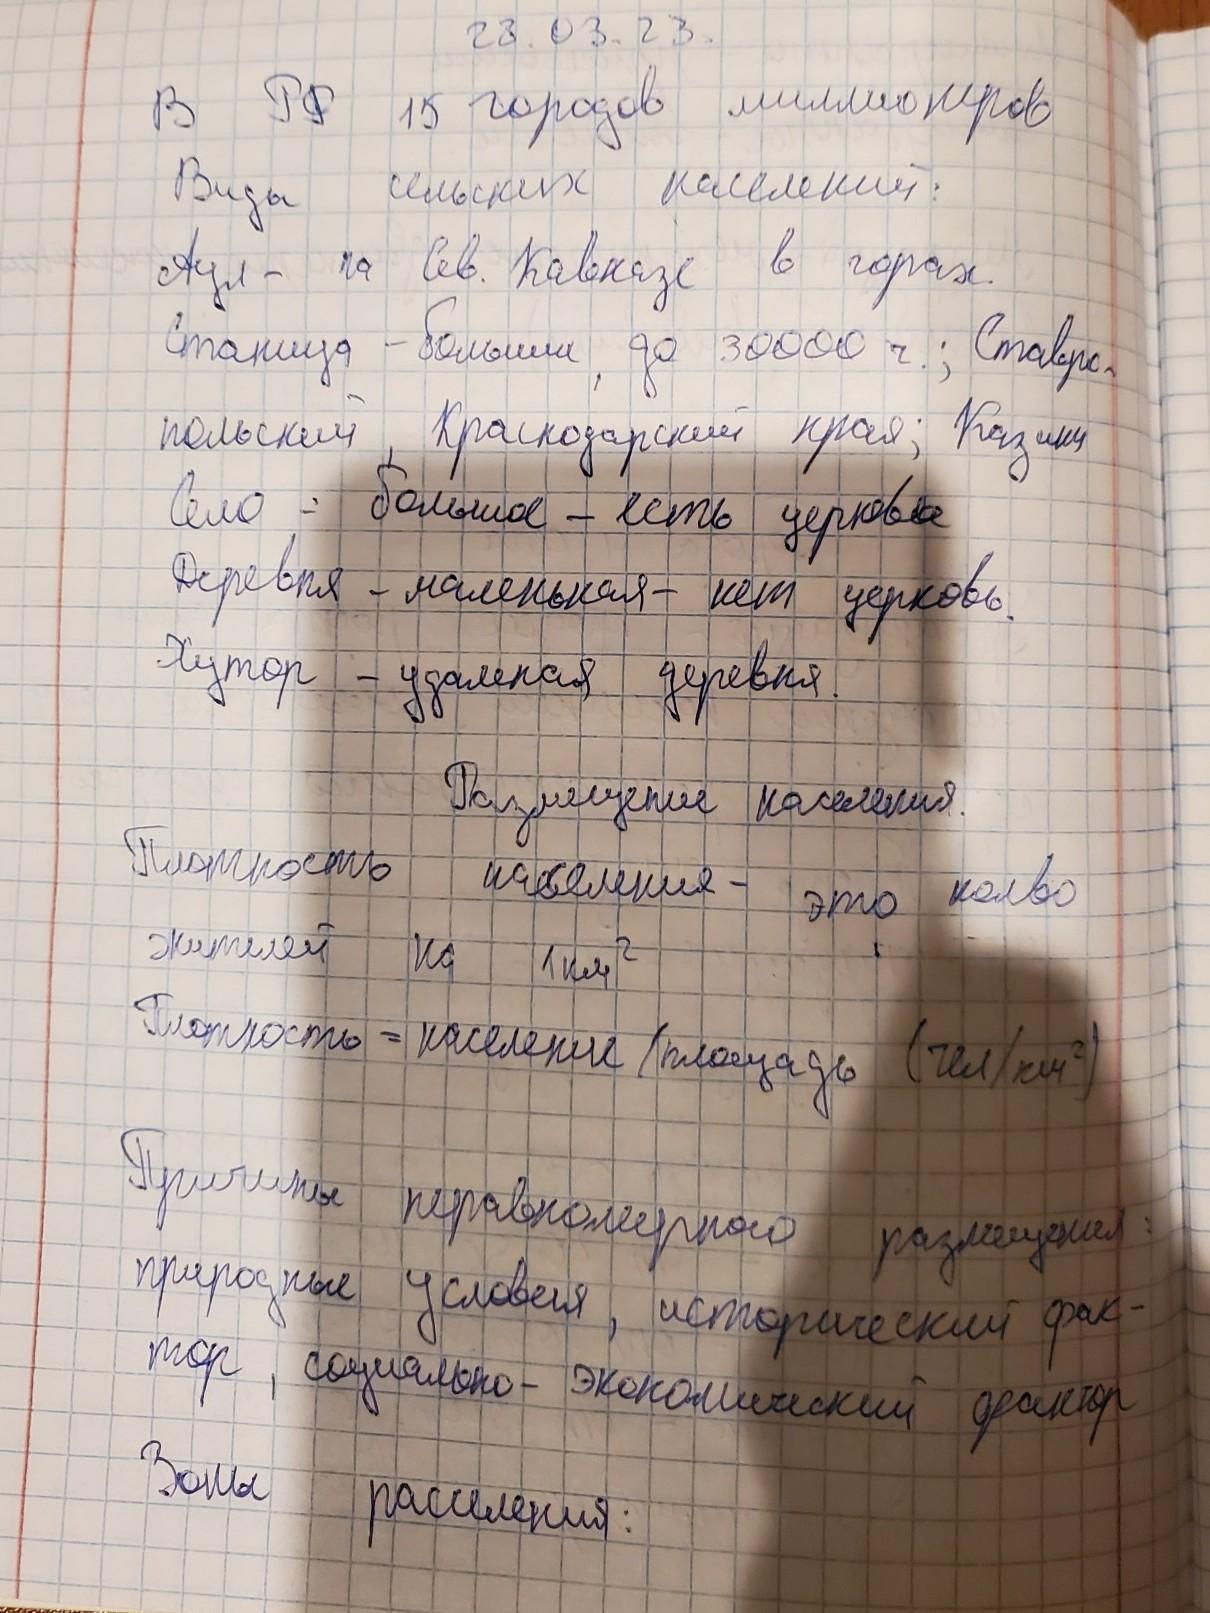 23.03.23.
В РФ 15 городов миллионеров
Виды сельских населений:
Аул - на Сев. Кавказе в горах.
Станица - большие, до 30000 ч.; Ставро-
польский, Краснодарский края;
Село - большое - есть церковь
Деревня - маленькая - нет церковь.
Хутор - удаленая деревня.
Размещение населения.
Плотность населения - это колво
жителей на 1км²
Плотность = население/площадь (чел/км²)
Причины неравномерного размещения:
природные условия, исторический фак-
тор, социально-экономический фактор
Зоны расселения: